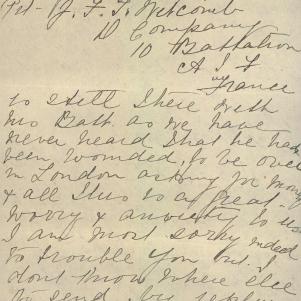 Pte J. F. T. Witcomb
D Company
10 Battalion
A I F
France
to still there with
his Batt as we have
never heard that he has
been wounded, to be over
in London asking for money
& all this is a great
worry & anxiety to us
I am most sorry indeed
to trouble you but I
dont know where else
to send, by